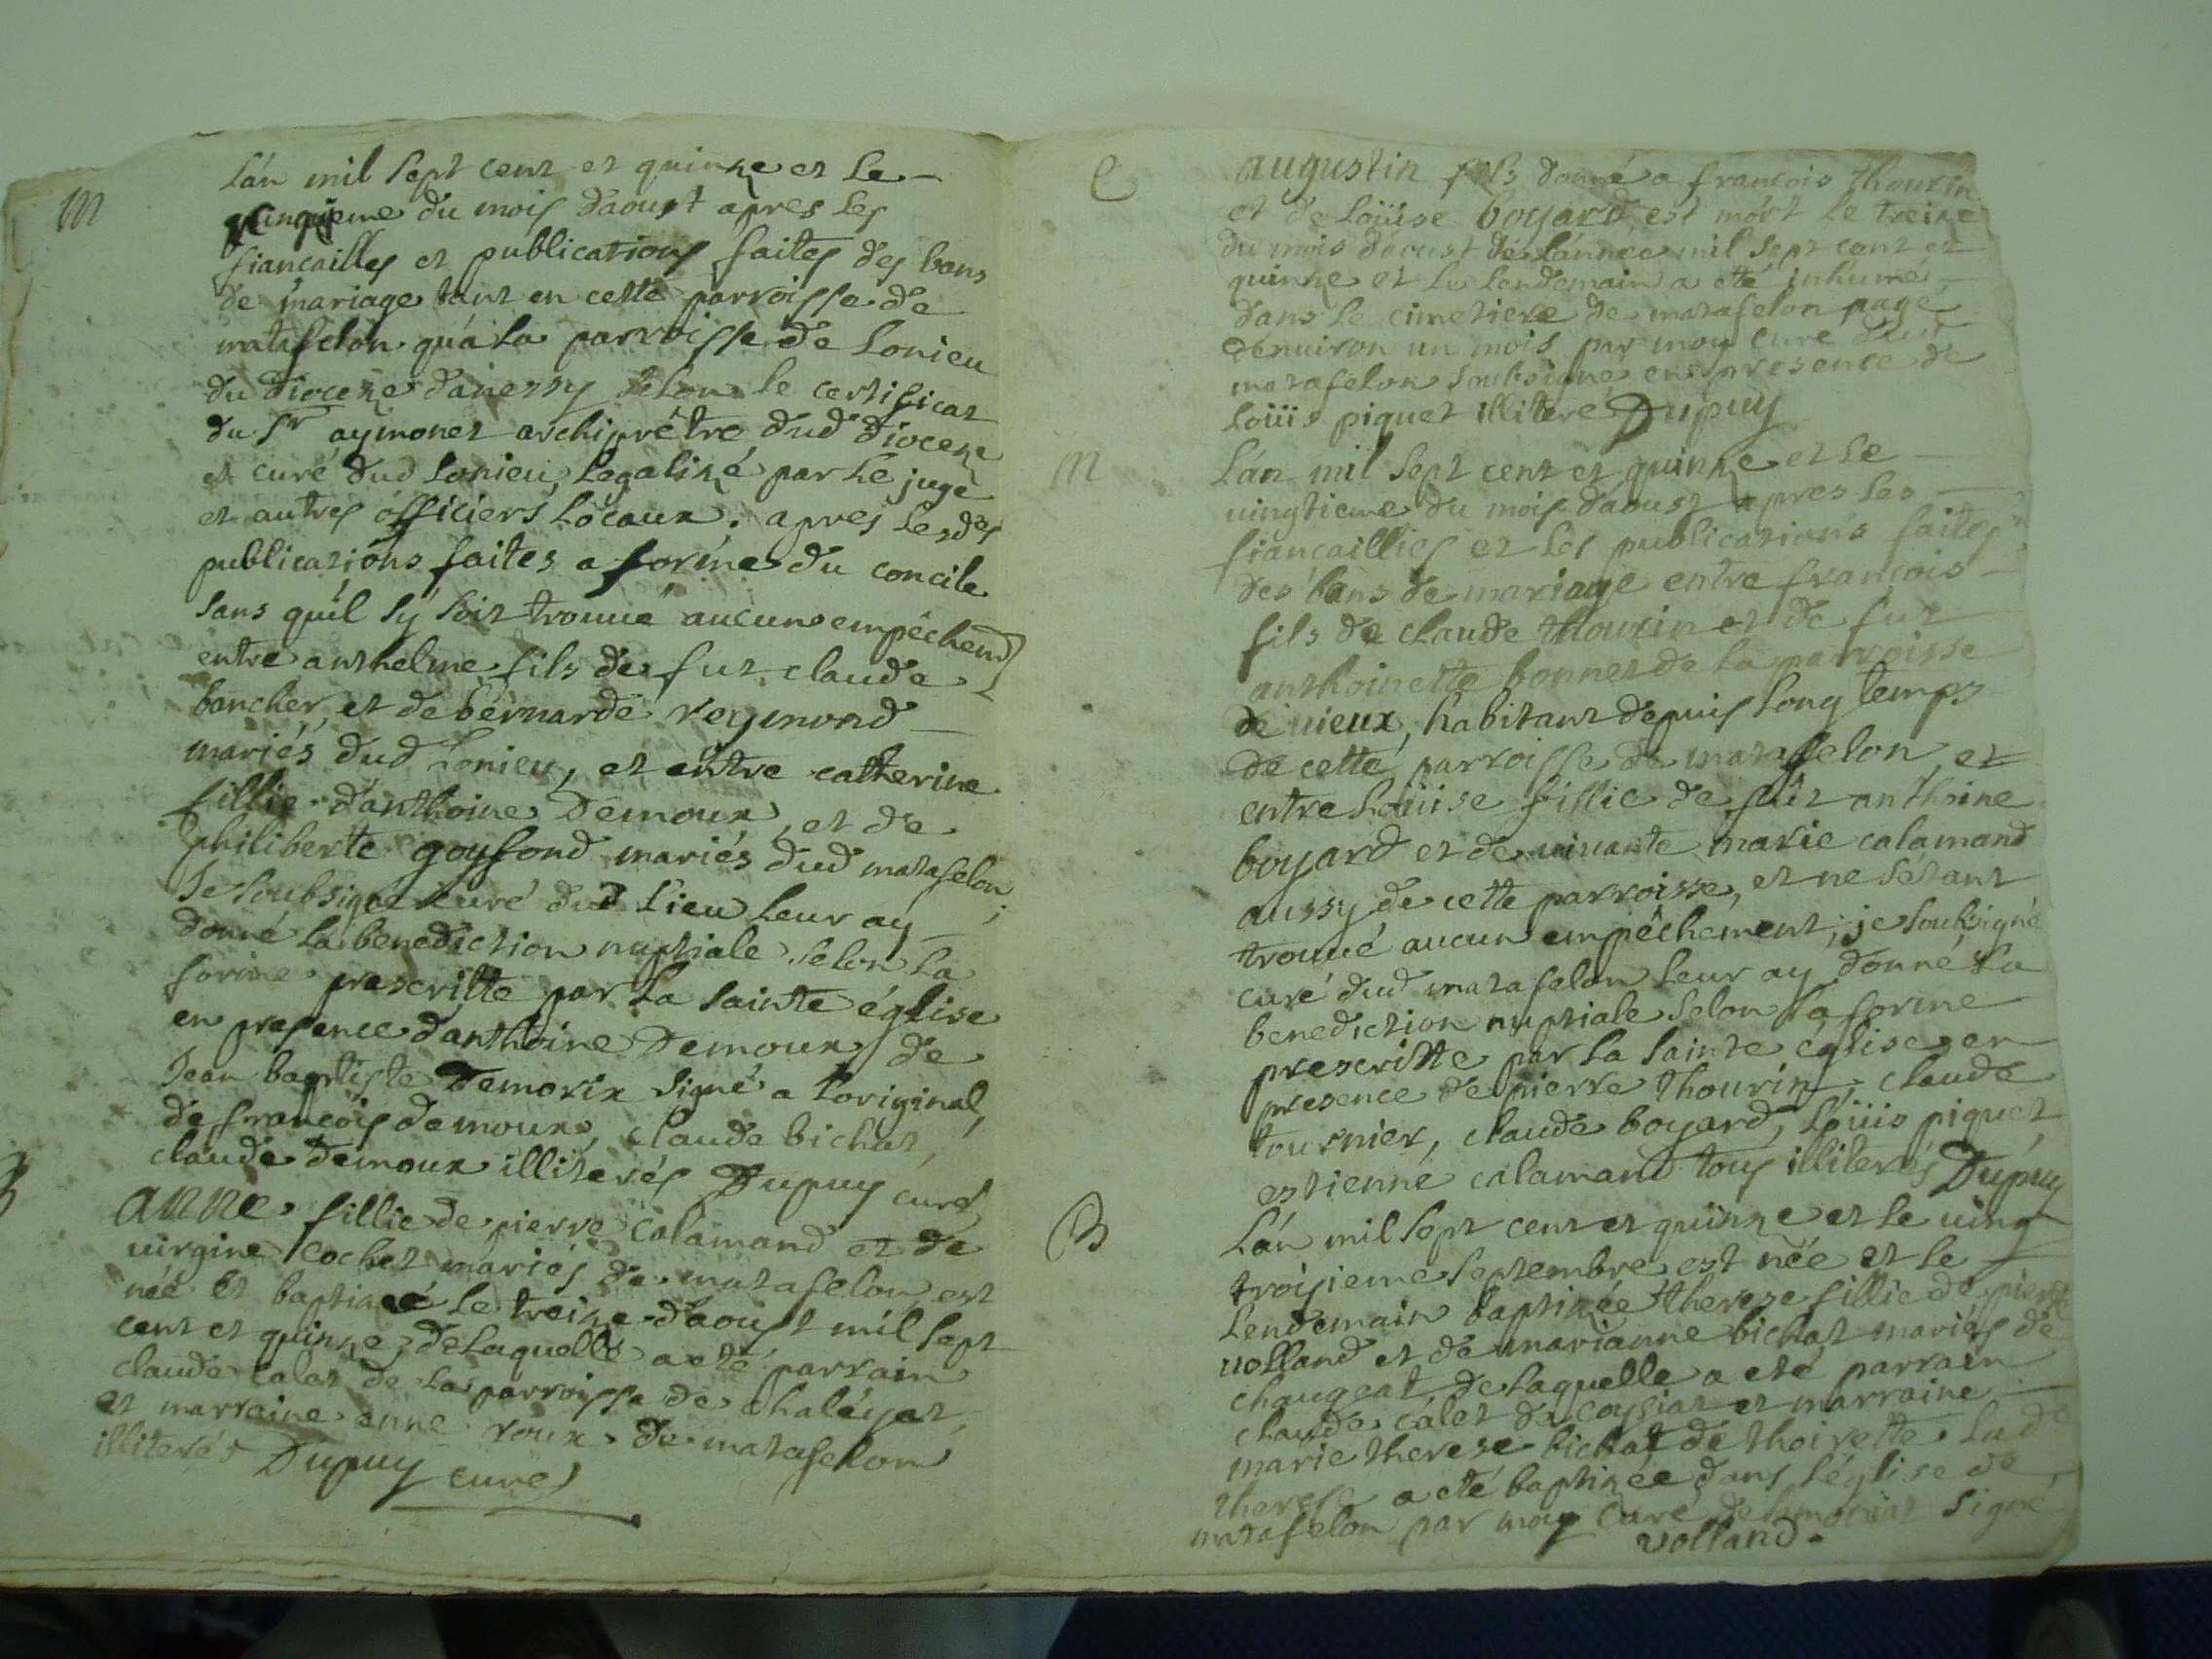 M
Lán mil sept cent et quinze et le
cinquieme du mois daoust apres les
fiancailles et publications faites des bans
de mariage tant en cette parroisse de
matafelon quá la parroisse de Lonieu
du dioceze danessy selon le certificat
du Sr aymonet archiprétre dud dioceze
et curé dud Lonieu legalizé par le juge
et autres ófficiers locaux. apres lesdes
publicatións faites a forme du concile
sans quíl sý soit trouué aucun empéchemt
entre anthelme fils de fut claude
bancher, et de bérnarde reymond
mariés dud Lonieu, et entre catterine
fillie danthoine Demoux, et de
philiberte goyfond mariés dud matafelon;
Je soubsigné curé dud lieu leur ay
donné la benediction nuptiale selon la
forme prescritte par la sainte église
en presence danthoine Demoux, de
Jean baptiste Demorix signé a loriginal,
de francois demoux, claude bichat,
claude demoux illiterés Dupuy curé
B
anne fillie de pierre calamand et de
uirgine cochet mariés de matafelon est
née et baptizeé le treize daoust mil sept
cent et quinze, de laquelle a eté parrain
claude calat de la parroisse de chaléyat,
et marraine anne roux de matafelon
illiterés Dupuy curé
e
augustin fils donné a francois thourin
et de Loüise boyard est mórt le treize
du mois daoust de lánnee mil sept cent et
quinze et le lendemain a eté inhumé
dans le cimetiere de matafelon pagé
denuiron un mois par moy curé dud
matafelon soubsigné en presence de
loüis piquet illiteré Dupuy
M
Lán mil sept cent et quinze et le
uingtieme du mois daoust apres les
fiancaillies et les publications faites
des bans de mariage entre francois
fils de claude thourin et de fut
anthoinette bonnet de la parroisse
de uieux, habitant depuis long temps
de cette parroisse de matafelon et
entre Loüise fillie de fût anthoine
boyard et de uiuante marie calamand
aussy de cette parroisse, et ne sétant
trouué aucun empêchement, je soubsigné
curé dud matafelon leur ay donné la
benediction nuptiale selon la forme
prescritte par la sainte église en
presence de pierre thourin, claude
tournier, claude boyard, loüis piquet
estienne calamand tous illiterés Dupuy
B
Lán mil sept cent et quinze et le uingt
troisieme septembre est née et le
lendemain baptizée therese fillie de pierre
uolland et de marianne bichat mariés de
chaugeat, de laquelle a eté parrain
claude cálet de coysiat et marraine
marie therese bichat de thoirette. lad
therese a eté baptizée dans léglise de
matafelon par moy curé de signé
volland.